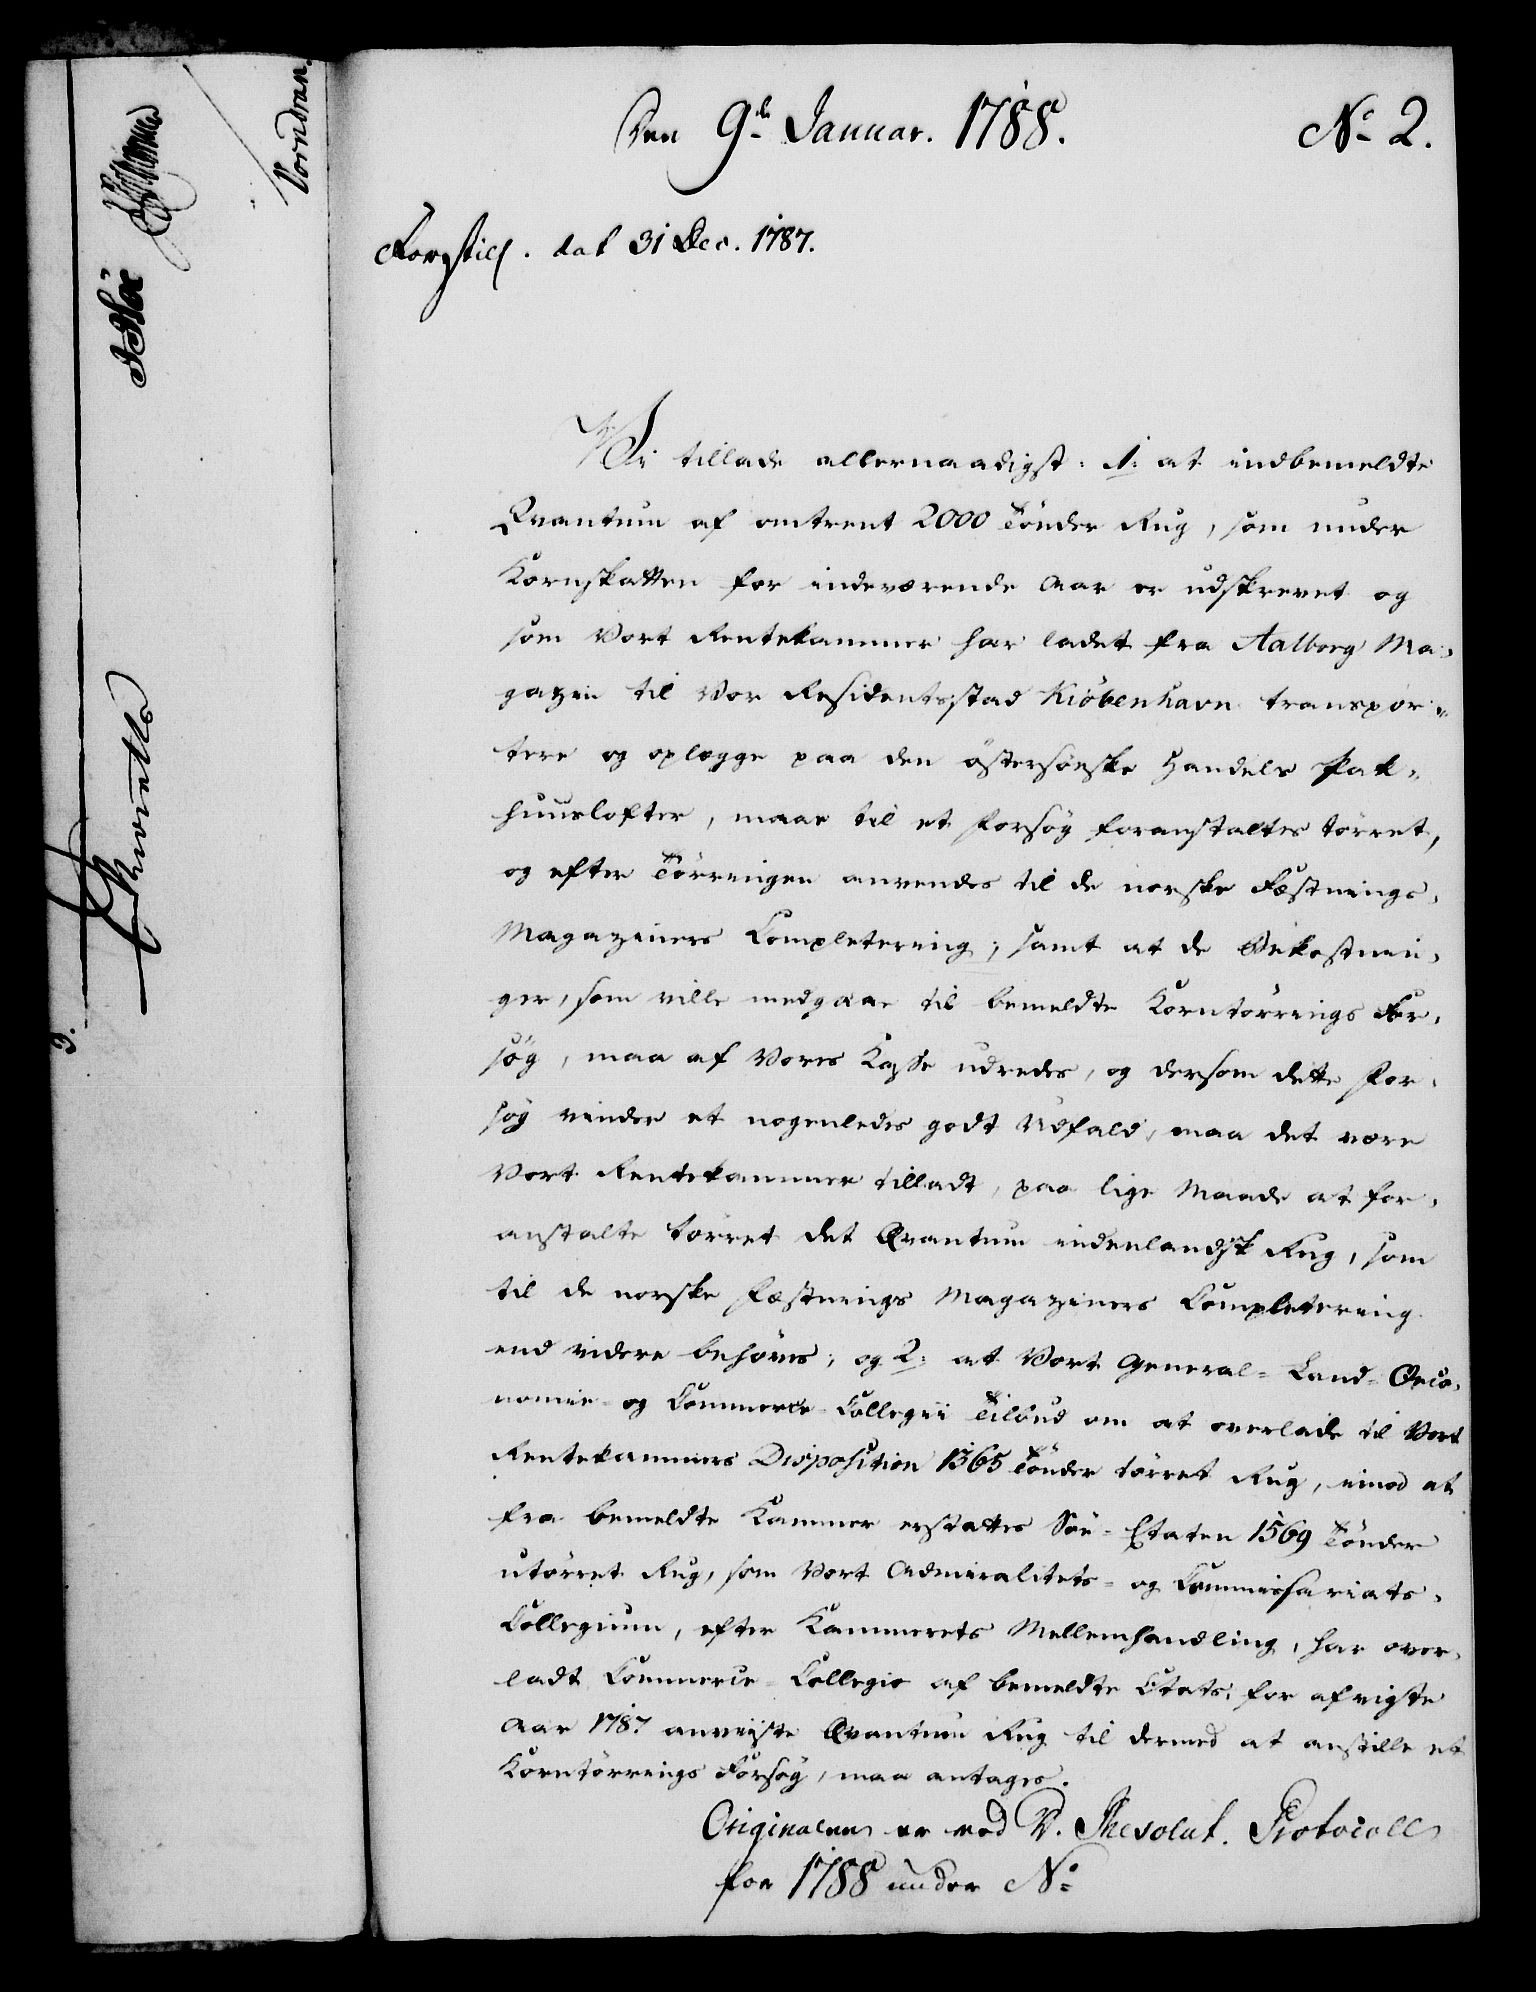 Den 9de Januar. 1788.
No 2.
Forestill. dat 31 Dec. 1787.
Vi tillade allernaadigst: 1: at indbemeldte
Qvantum af omtrent 2000 Tönder Rug, som under
Kornskatten for indeværende Aar er udskrevet og
som Vort Rentekammer har ladet fra Aalborg Ma-
gazin til Vor Residentsstad Kiöbenhavn transpor-
tere og oplægge paa den östersöiske Handels Pak-
huuslofter, maae til et Forsög foranstaltes törret,
og efter Törringen anvendes til de norske Fæstnings-
Magaziners Completering; samt at de Bekostnin-
ger, som ville medgaae til bemeldte Korntörrings For-
sög, maa af Vores Kasse udredes, og dersom dette For-
sög vinder et nogenledes godt Udfald, maa det være
Vort Rentekammer tilladt, paa lige Maade at for-
anstalte törret det Qvantum indenlandsk Rug, som
til de norske Fæstnings Magaziners Completering
end videre behöves; og 2: at Vort General-Land-Oeco-
nomie- og Commerce-Collegii Tilbud om at overlade til Vort
Rentekammers Disposition 1365 Tönder törret Rug, imod at
fra bemeldte Kammer erstattes Söe-Etaten 1569 Tönder
utörret Rug, som Vort Admiralitets- og Commissariats-
Collegium, efter Kammerets Mellemhandling, har over-
ladt Commerce-Collegio af bemeldte Etats, for afvigte
Aar 1787 anviiste Qvantum Rug til dermed at anstille et
Korntörrings Forsög, maa antages.
Originalen er ved V. Resolut. Protocoll
for 1788 under No
Vorndran.
3.